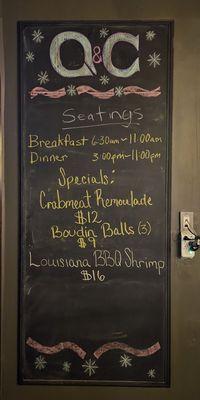 Q&C
Seatings
Breakfast 6:30am - 11:00am
Dinner 3:00pm - 11:00pm
Specials:
Crabmeat Remoulade
$12
Boudin Balls (3)
$9
Louisiana BBQ Shrimp
$16